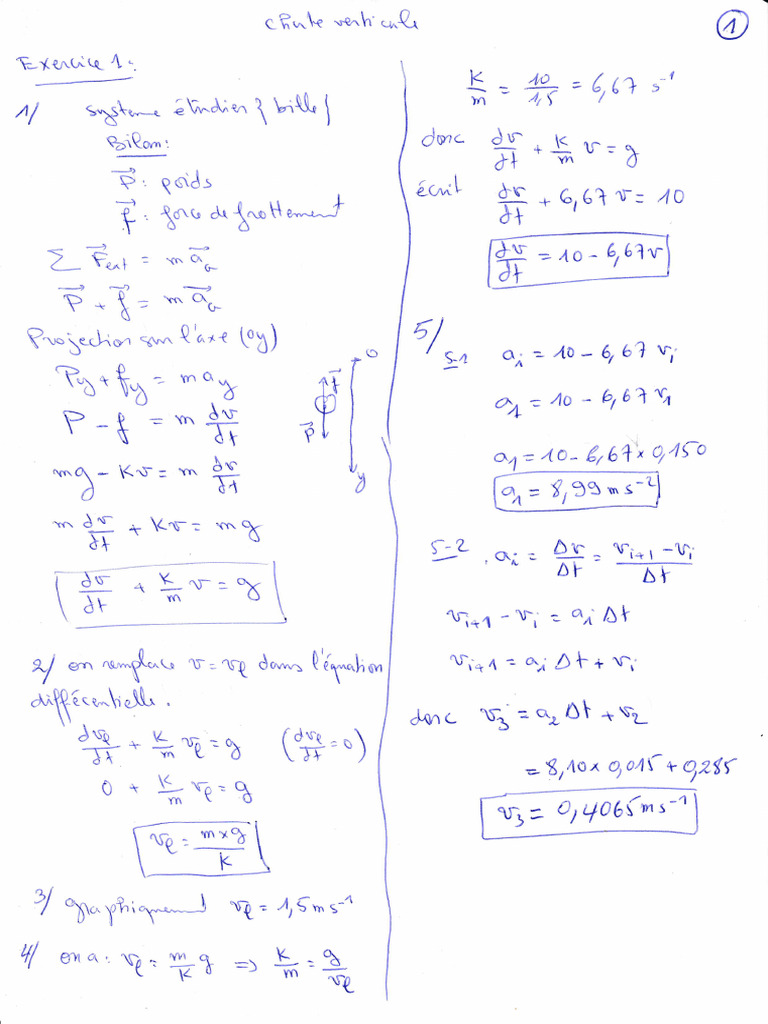 chute verticale
1
Exercice 1:
1/ systeme étudier { bille }
Bilan:
P⃗: poids
f⃗: force de frottement
∑ F⃗ext = m a⃗G
P⃗ + f⃗ = m a⃗G
Projection sur l'axe (oy)
Py + fy = m ay
P - f = m dv/dt
mg - Kv = m dv/dt
m dv/dt + Kv = mg
dv/dt + K/m v = g
o
f⃗
P⃗
y
2/ on remplace v = vℓ dans l'équation
différentielle.
dvℓ/dt + K/m vℓ = g (dvℓ/dt = 0)
0 + K/m vℓ = g
vℓ = m×g/K
3/ graphiquement vℓ = 1,5 m s⁻¹
4/ on a: vℓ = m/K g ⇒ K/m = g/vℓ
K/m = 10/1,5 = 6,67 s⁻¹
donc dv/dt + K/m v = g
écrit dv/dt + 6,67 v = 10
dv/dt = 10 - 6,67v
5/
5-1 ai = 10 - 6,67 vi
a1 = 10 - 6,67 v1
a1 = 10 - 6,67 × 0,150
a1 = 8,99 m s⁻²
5-2 . ai = Δv/Δt = vi+1 - vi/Δt
vi+1 - vi = ai Δt
vi+1 = ai Δt + vi
donc v3 = a2 Δt + v2
= 8,10 × 0,015 + 0,285
v3 = 0,4065 m s⁻¹